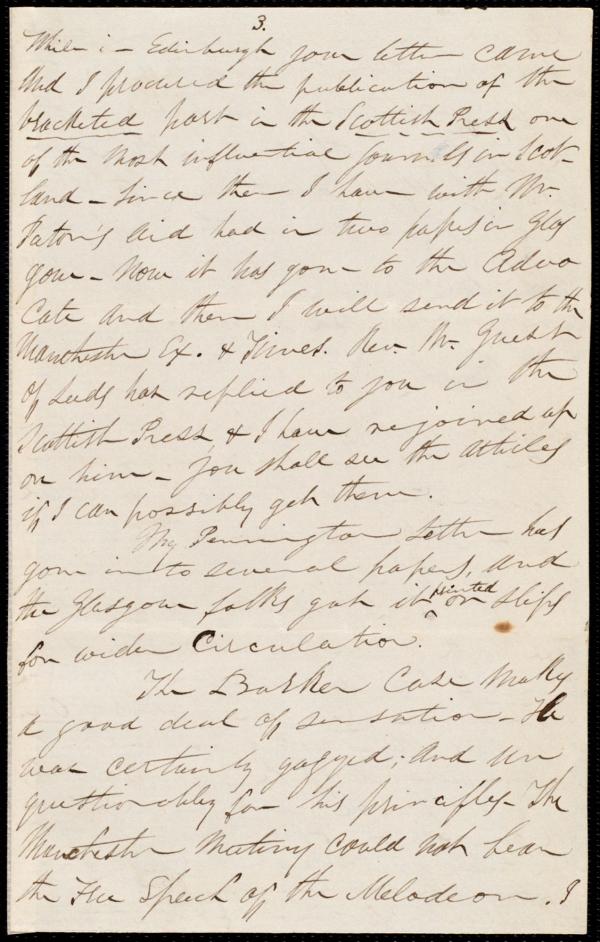 3.
While in Edinburgh your letter came
And I procured the publication of the
bracketed part in the Scottish Press one
of the most influential journals in Scot-
land - Since then I have with Mr.
Paton's aid had in two papers in Glas
gow - Now it has gone to the Advo
cate and then I will send it to the
Manchester Ex. & Times. Rev. Mr. Guest
of Leeds has replied to you in the
Scottish Press, & I have rejoined up
on him - You shall see the articles
if I can possibly get them.
My Pennington Letter has
gone in to several papers, and
the Glasgow folks got it printed on slips
for wider Circulation.
The Barker Case makes
a good deal of sensation - He
was certainly gagged; and un
questionably for his principles - The
Manchester Meeting could not bear
the Free Speech of the Melodeon. I